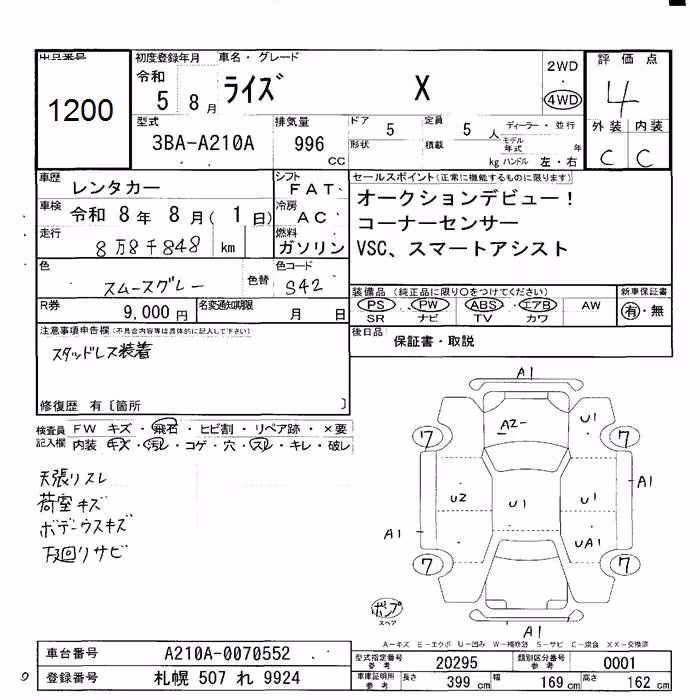 出品番号
1200
初度登録年月
令和
5 8月
車名・グレード
ライズ X
2WD
・
4WD
評価点
4
外装 内装
C C
型式
3BA-A210A
排気量
996
CC
ドア
5
定員
5 人
ディーラー・並行
形状
積載
kg
モデル年式 年
ハンドル 左・右
車歴
レンタカー
シフト
FAT
車検
令和 8年 8月(1日)
冷房
AC
走行
8万8千848 km
燃料
ガソリン
色
スムースグレー
色替
色コード
S42
R券
9,000円
名変通知期限
月 日
セールスポイント(正常に機能するものに限ります)
オークションデビュー!
コーナーセンサー
VSC、スマートアシスト
装備品(純正品に限り〇をつけてください)
PS・PW・ABS・エアB AW
SR ナビ TV カワ
新車保証書
有・無
後日品
保証書・取説
注意事項申告欄(不具合内容等は具体的に記入して下さい)
スタッドレス装着
修復歴 有〔箇所 〕
検査員記入欄
FW キズ・飛石・ヒビ割・リペア跡・×要
内装 キズ・汚レ・コゲ・穴・スレ・キレ・破レ
天張リスレ
荷室キズ
ボデーウスキズ
下回リサビ
A1
A2
U1
7
7
U2
U1
U1
A1
A1
UA1
7
7
ポンプ
スペア
A1
A-キズ E-エクボ U-凹み W-補修跡 S-サビ C-腐食 XX-交換済
車台番号
A210A-0070552
登録番号
札幌 507 れ 9924
型式指定番号
参考
20295
類別区分番号
参考
0001
車庫証明用
参考
長さ
399 cm
幅
169 cm
高さ
162 cm